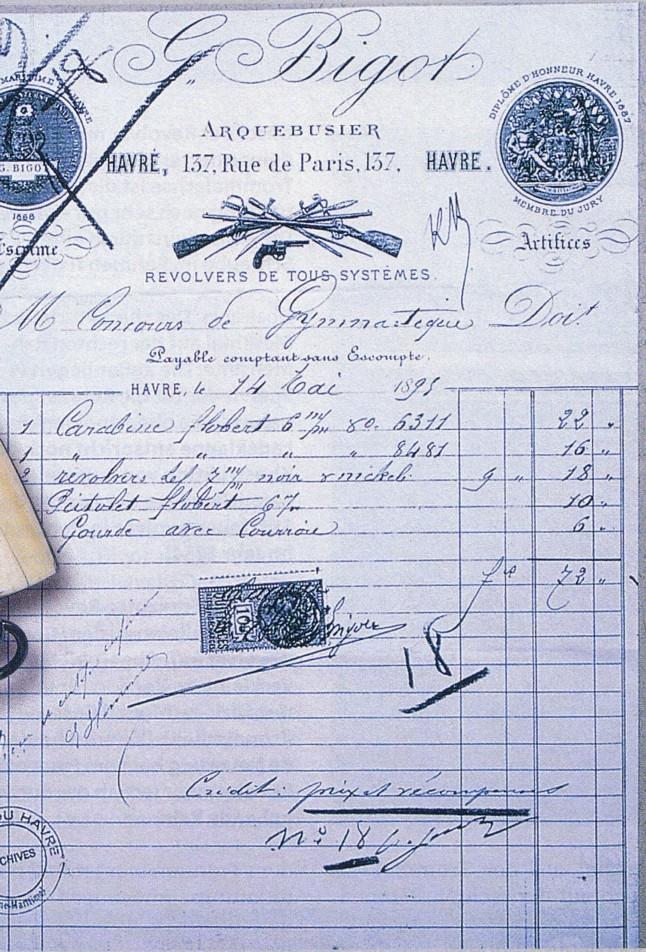 G. Bigot
MARITIME
HAVRE
G. BIGOT
1868
Escrime
DIPLÔME D'HONNEUR HAVRE 1887
MEMBRE DU JURY
Artifices
ARQUEBUSIER
HAVRE, 137, Rue de Paris, 137, HAVRE.
REVOLVERS DE TOUS SYSTÈMES.
M Concours de Gymnastique Doit
Payable comptant sans Escompte.
HAVRE, le 14 Mai 1895
1 Carabine flobert 6 m/m no. 6311 22 "
1 " " " " 8481 16 "
2 revolvers Lef 7 m/m noir & nickelé 9 " 18 "
Pistolet flobert 6 m/m 10 "
Gourde avec Courroie 6 "
Fs 72 "
10c
18
Crédit: prix et récompenses
No 18
DU HAVRE
ARCHIVES